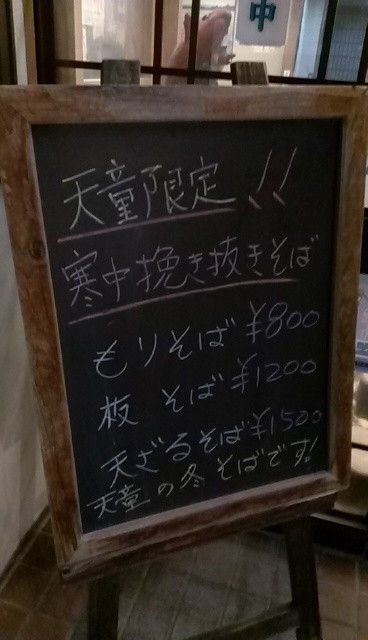 中
天童限定!!
寒中挽き抜きそば
もりそば ¥800
板 そば ¥1200
天ざるそば ¥1500
天童の冬そばです!